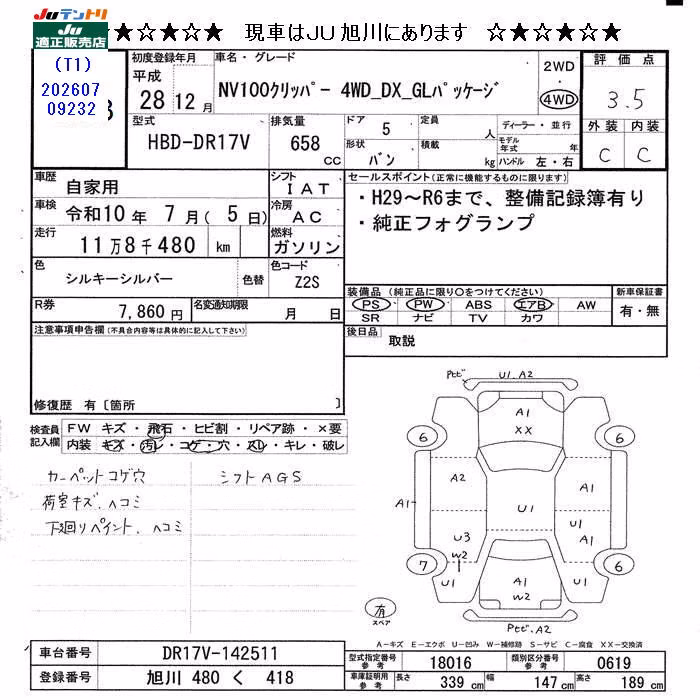 JUテントリ
JU
適正販売店
★☆★☆★ 現車はJU旭川にあります ☆★☆★☆★
(T1)
202607
09232
初度登録年月
平成
28年12月
車名・グレード
NV100クリッパー 4WD_DX_GLパッケージ
2WD
・
4WD
評価点
3.5
外装 内装
C C
型式
HBD-DR17V
排気量
658
CC
ドア 5
形状 バン
定員 人
積載 kg
ディーラー・並行
モデル年式 年
ハンドル 左・右
車歴 自家用
シフト IAT
車検 令和10年 7月( 5日)
冷房 AC
走行 11万8千480 km
燃料 ガソリン
色 シルキーシルバー 色替
色コード Z2S
R券 7,860円
名変通知期限 月 日
セールスポイント(正常に機能するものに限ります)
・H29~R6まで、整備記録簿有り
・純正フォグランプ
装備品 (純正品に限り○をつけてください)
PS PW ABS エアB AW
SR ナビ TV カワ
新車保証書
有・無
後日品 取説
注意事項申告欄(不具合内容等は具体的に記入して下さい)
修復歴 有〔箇所 〕
検査員記入欄
FW キズ・飛石・ヒビ割・リペア跡・×要
内装 キズ・汚レ・コゲ・穴・スレ・キレ・破レ
カーペットコゲ穴
シフトAGS
荷室キズ、ヘコミ
下廻りペイント、ヘコミ
U1.A2
A1
XX
6 6
A2
A1
A1
U1
U1
A1
U3
W2
7 6
U1
A1
W2
U1
有
スペア
A2
A-キズ E-エクボ U-凹み W-補修跡 S-サビ C-腐食 XX-交換済
車台番号 DR17V-142511
登録番号 旭川 480 く 418
型式指定番号 参考 18016
類別区分番号 参考 0619
車庫証明用 参考 長さ 339 cm 幅 147 cm 高さ 189 cm